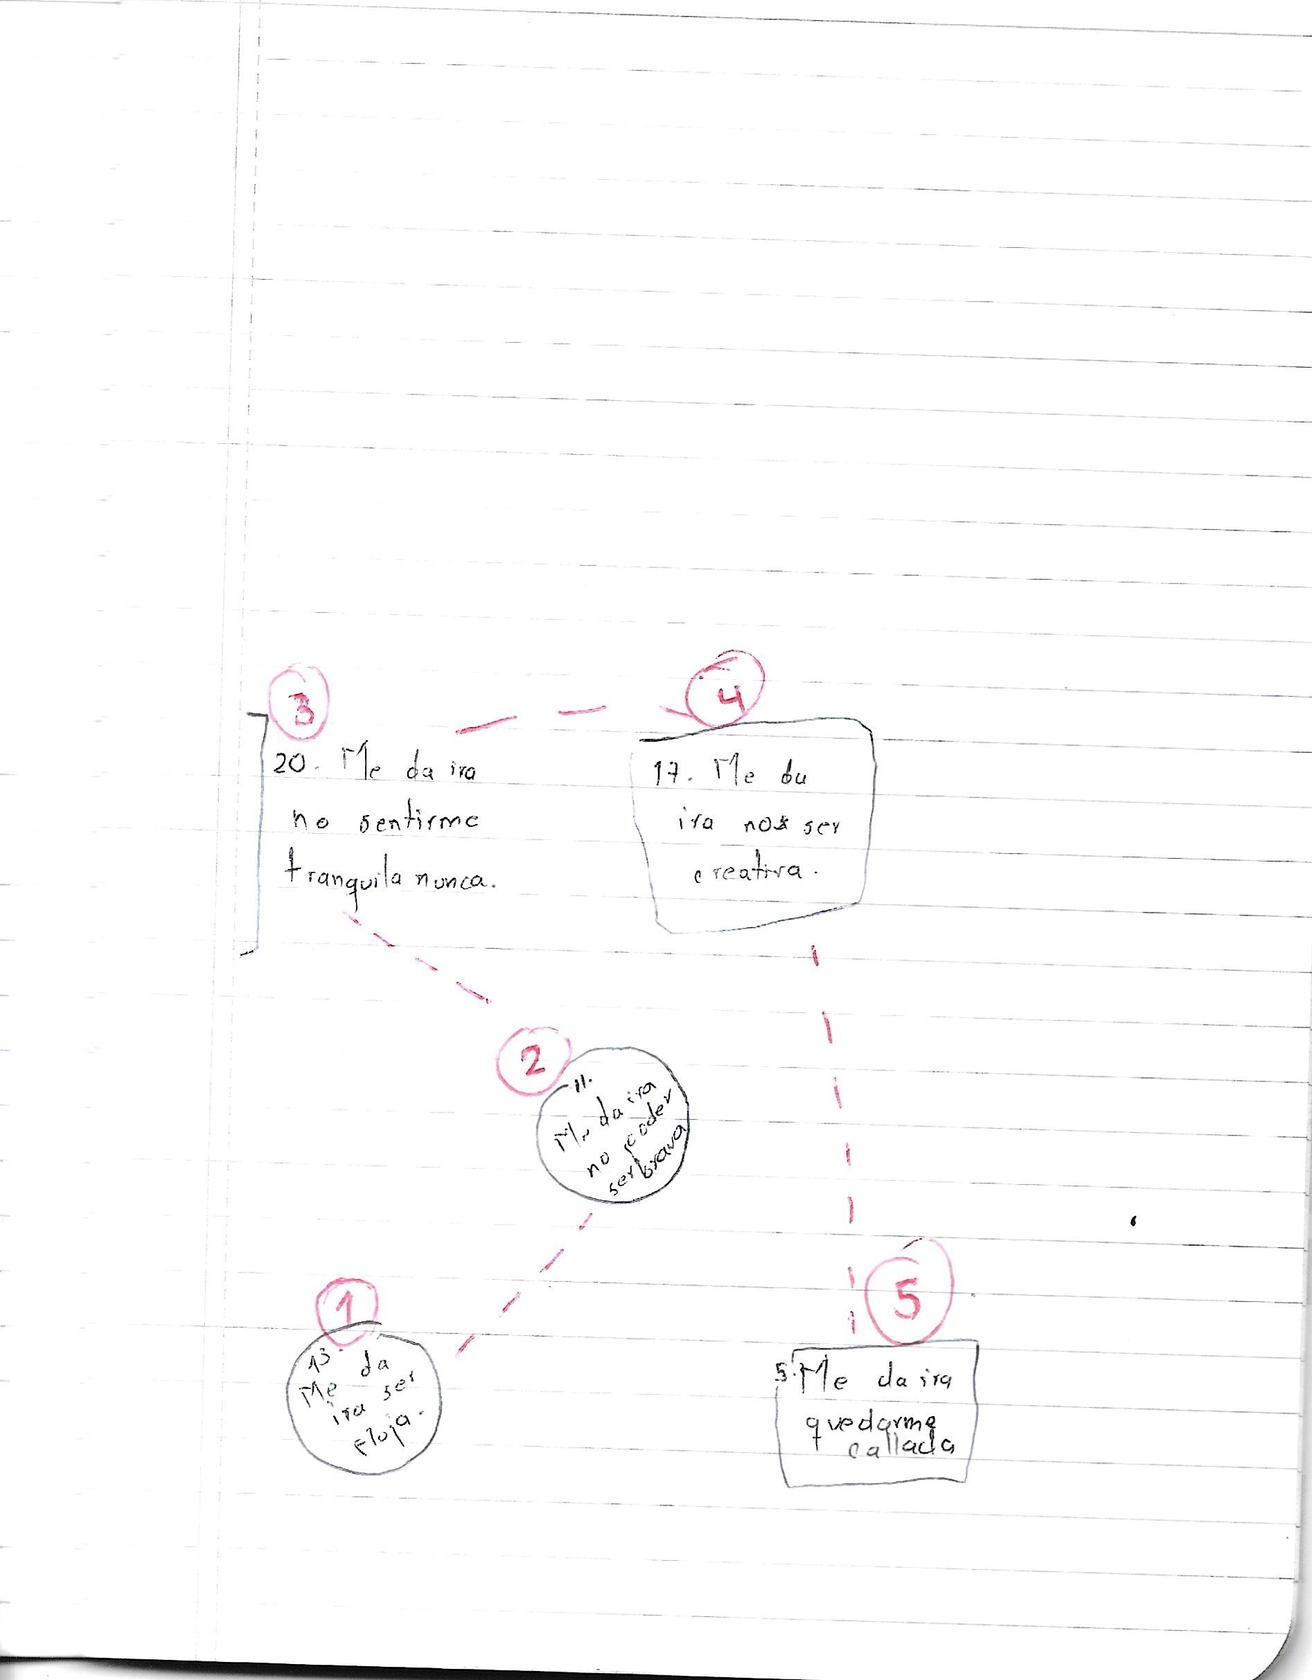 3
20. Me da ira
no sentirme
tranquila nunca.
4
17. Me da
ira no ser
creativa.
2
11.
Me da ira
no poder
ser brava
1
13.
Me da
ira ser
floja.
5
5. Me da ira
quedarme
callada